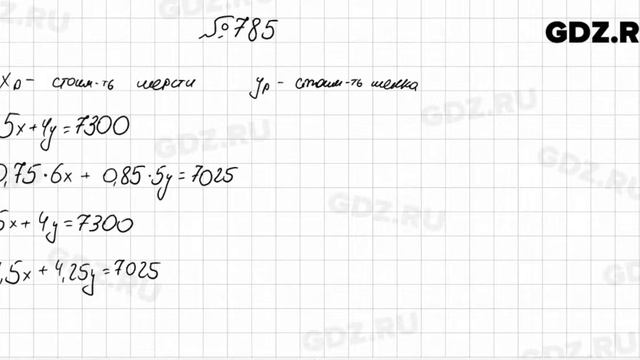 №785
GDZ.R
x р – стоим-ть шерсти y р – стоим-ть шелка
5x+4y=7300
0,75·6x + 0,85·5y=7025
5x+4y=7300
,5x+4,25y=7025
GDZ.RU
GDZ.RU
GDZ.RU
GDZ.RU
GDZ.RU
GDZ.RU